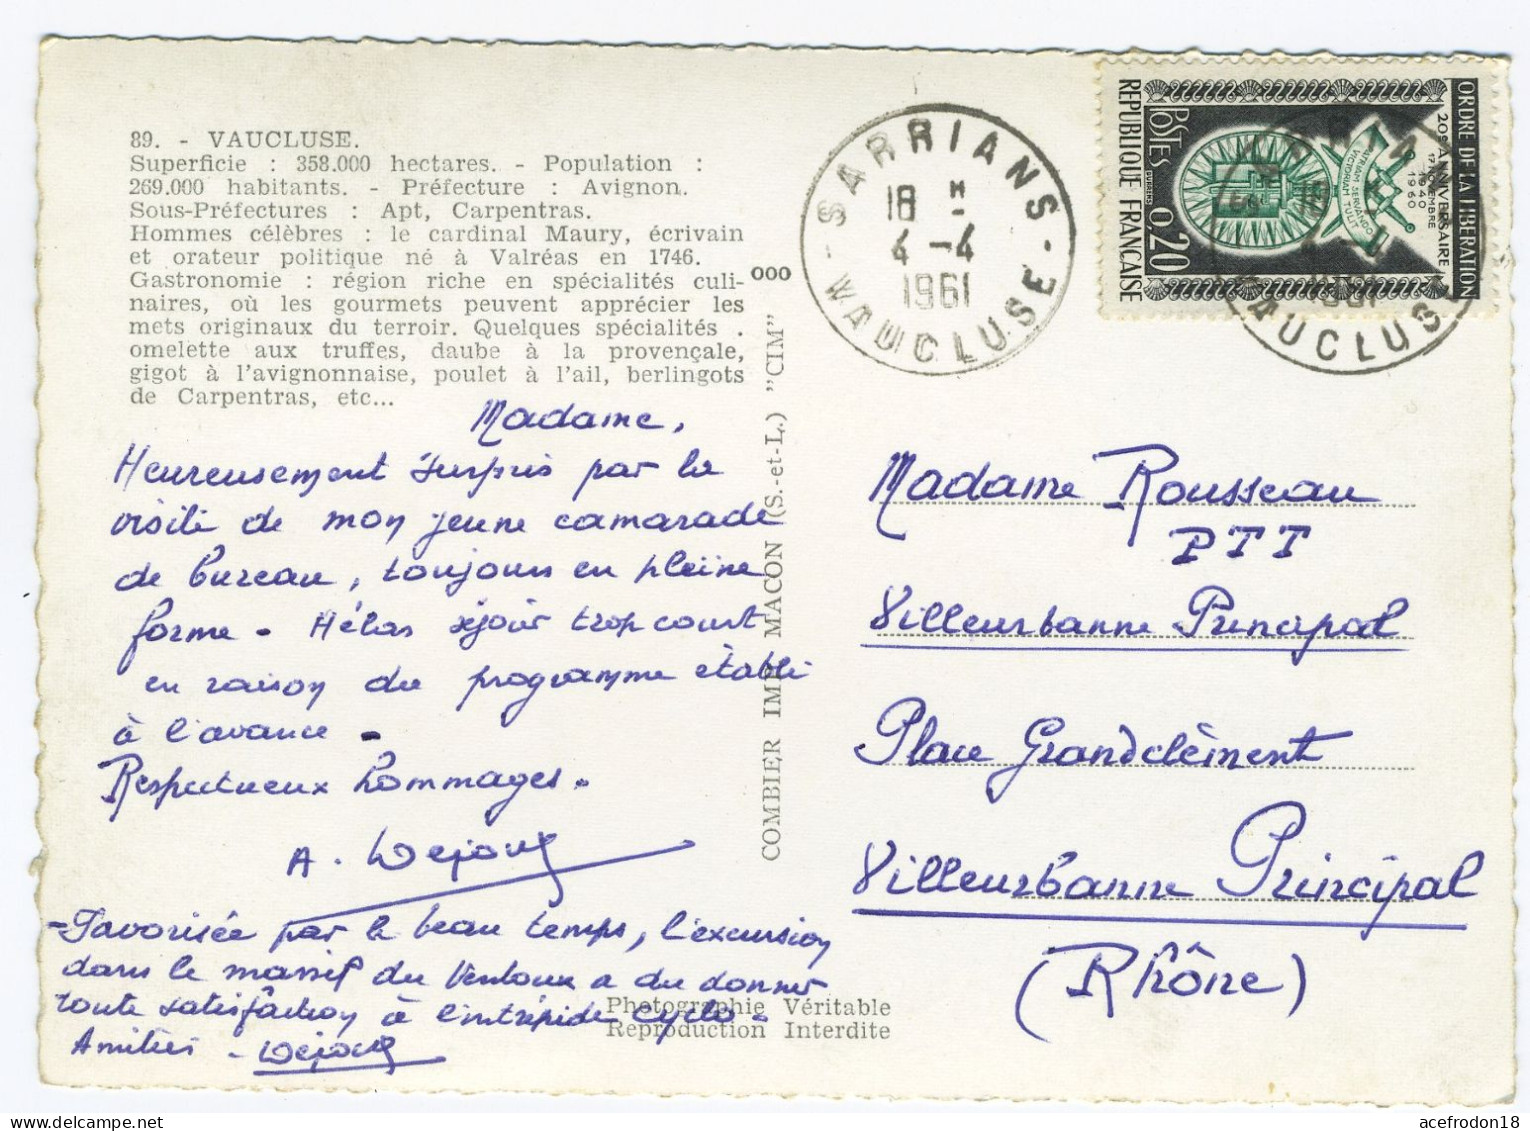 89. - VAUCLUSE.
Superficie : 358.000 hectares. - Population :
269.000 habitants. - Préfecture : Avignon.
Sous-Préfectures : Apt, Carpentras.
Hommes célèbres : le cardinal Maury, écrivain
et orateur politique né à Valréas en 1746.
Gastronomie : région riche en spécialités culi-
naires, où les gourmets peuvent apprécier les
mets originaux du terroir. Quelques spécialités .
omelette aux truffes, daube à la provençale,
gigot à l'avignonnaise, poulet à l'ail, berlingots
de Carpentras, etc...
Madame,
Heureusement surpris par la
visite de mon jeune camarade
de bureau, toujours en pleine
forme - Hélas séjour trop court
en raison du programme établi
à l'avance -
Respectueux hommages.
A. Dejoux
- Favorisée par le beau temps, l'excursion
dans le massif du Ventoux a du donner
toute satisfaction à l'intrépide cyclo -
Amitiés - Dejoux
COMBIER IMP MACON (S.-et-L.) "CIM"
ooo
Photographie Véritable
Reproduction Interdite
- SARRIANS -
18 H -
4 -4
1961
VAUCLUSE
ORDRE DE LA LIBERATION
20e ANNIVERSAIRE
17 NOVEMBRE
1940
1960
PATRIAM SERVANDO
VICTORIAM TULIT
POSTES
0,20
REPUBLIQUE FRANÇAISE
VAUCLUSE
Madame Rousseau
PTT
Villeurbanne Principal
Place Grandclément
Villeurbanne Principal
(Rhône)
acefrodon18